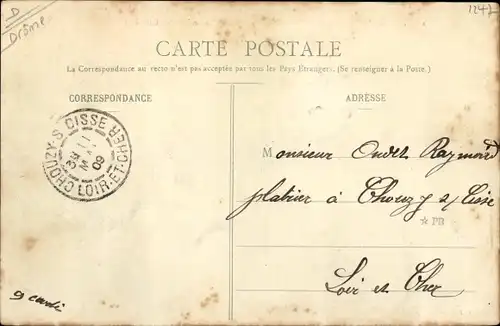 D
Drôme
1247
CARTE POSTALE
La Correspondance au recto n'est pas acceptée par tous les Pays Étrangers. (Se renseigner à la Poste.)
CORRESPONDANCE
ADRESSE
CHOUZY-S-CISSE
LOIR-ET-CHER
09
Monsieur Oudet Raymond
platrier à Chouzy s/ Cisse
* PB
Loir et Cher